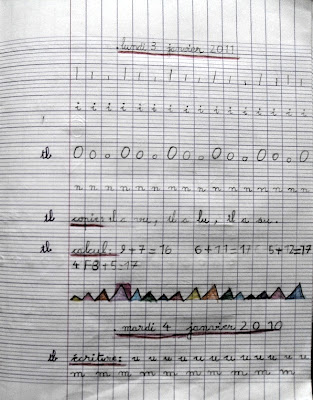 lundi 3 janvier 2011
l l l l l l l l l l l l l l
i i i i i i i i i i i i i i i
tb O o . O o o . O o o O o o . O o .
n n n n n n n n n n n n n n n
tb copier: il a vu, il a lu, il a su.
tb calcul: 9+7=16 6+11=17 5+12=17
mardi 4 janvier 2010
tb écriture: u u u u u u u u u u u u
m m m m m m m m m m m m m m m